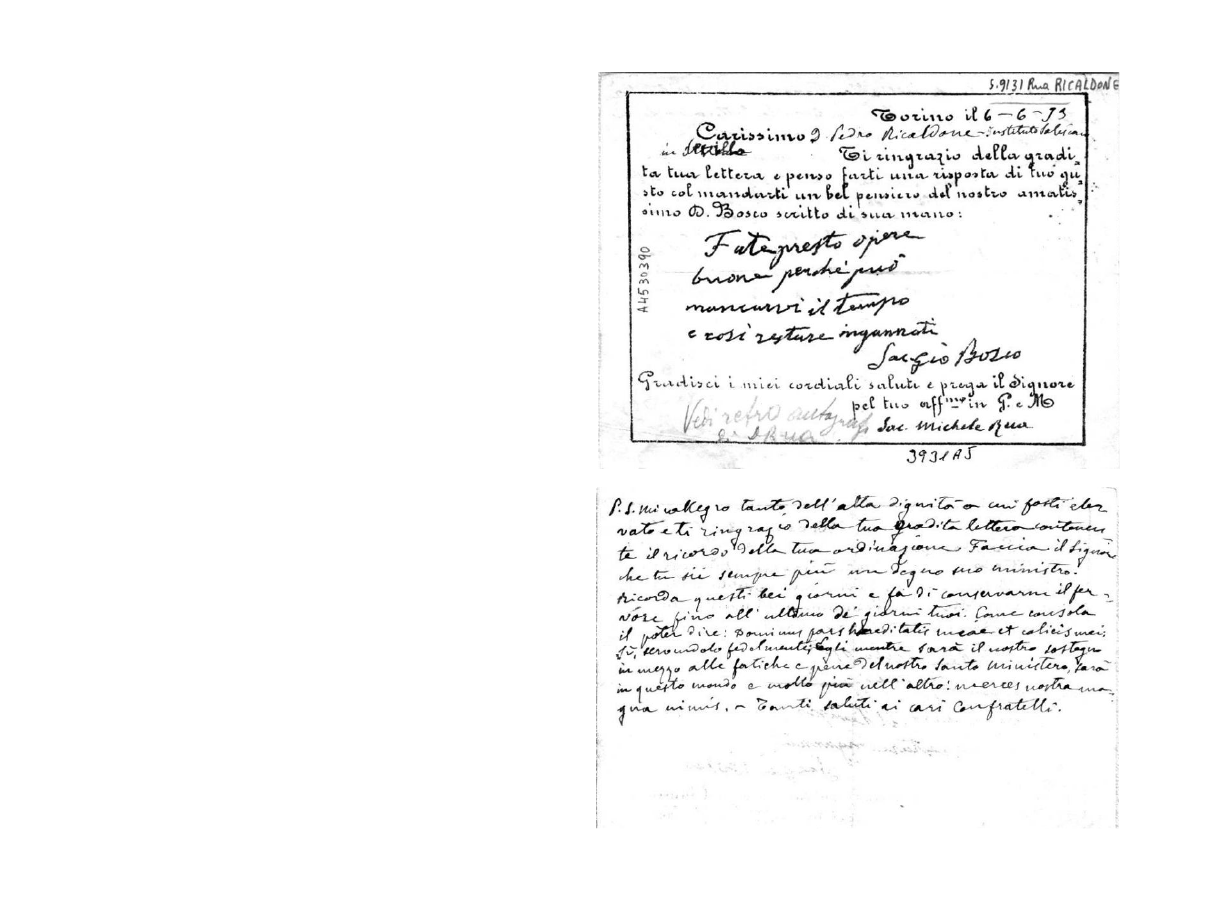 S.9131 Rua RICALDONE
Torino il 6-6-93
Carissimo D. Pedro Ricaldone - instituto Salesiano
in Sevilla Ti ringrazio della gradi-
ta tua lettera e penso farti una risposta di tuo gu-
sto col mandarti un bel pensiero del nostro amatis-
simo D. Bosco scritto di sua mano:
Fate presto opere
buone perché può
mancarvi il tempo
e così restare ingannati
Sac Gio Bosco
Gradisci i miei cordiali saluti e prega il Signore
pel tuo aff.mo in G. e M
Sac. Michele Rua
Vedi retro autografo
di D Rua
A4530390
3931A5
P.S. Mi rallegro tanto dell'alta dignità a cui fosti ele-
vato e ti ringrazio della tua gradita lettera contenen
te il ricordo della tua ordinazione. Faccia il Signore
che tu sii sempre più un degno suo ministro.
Ricorda questi bei giorni e fa di conservarne il fer-
vore fino all'ultimo de' giorni tuoi. Come consola
il poter dire: Dominus pars hereditatis meae et calicis mei.
Sì, servendolo fedelmente, Egli mentre sarà il nostro sostegno
in mezzo alle fatiche e pene del nostro santo ministero, sarà
in questo mondo e molto più nell'altro: merces nostra ma-
gna nimis. - Tanti saluti ai cari Confratelli.